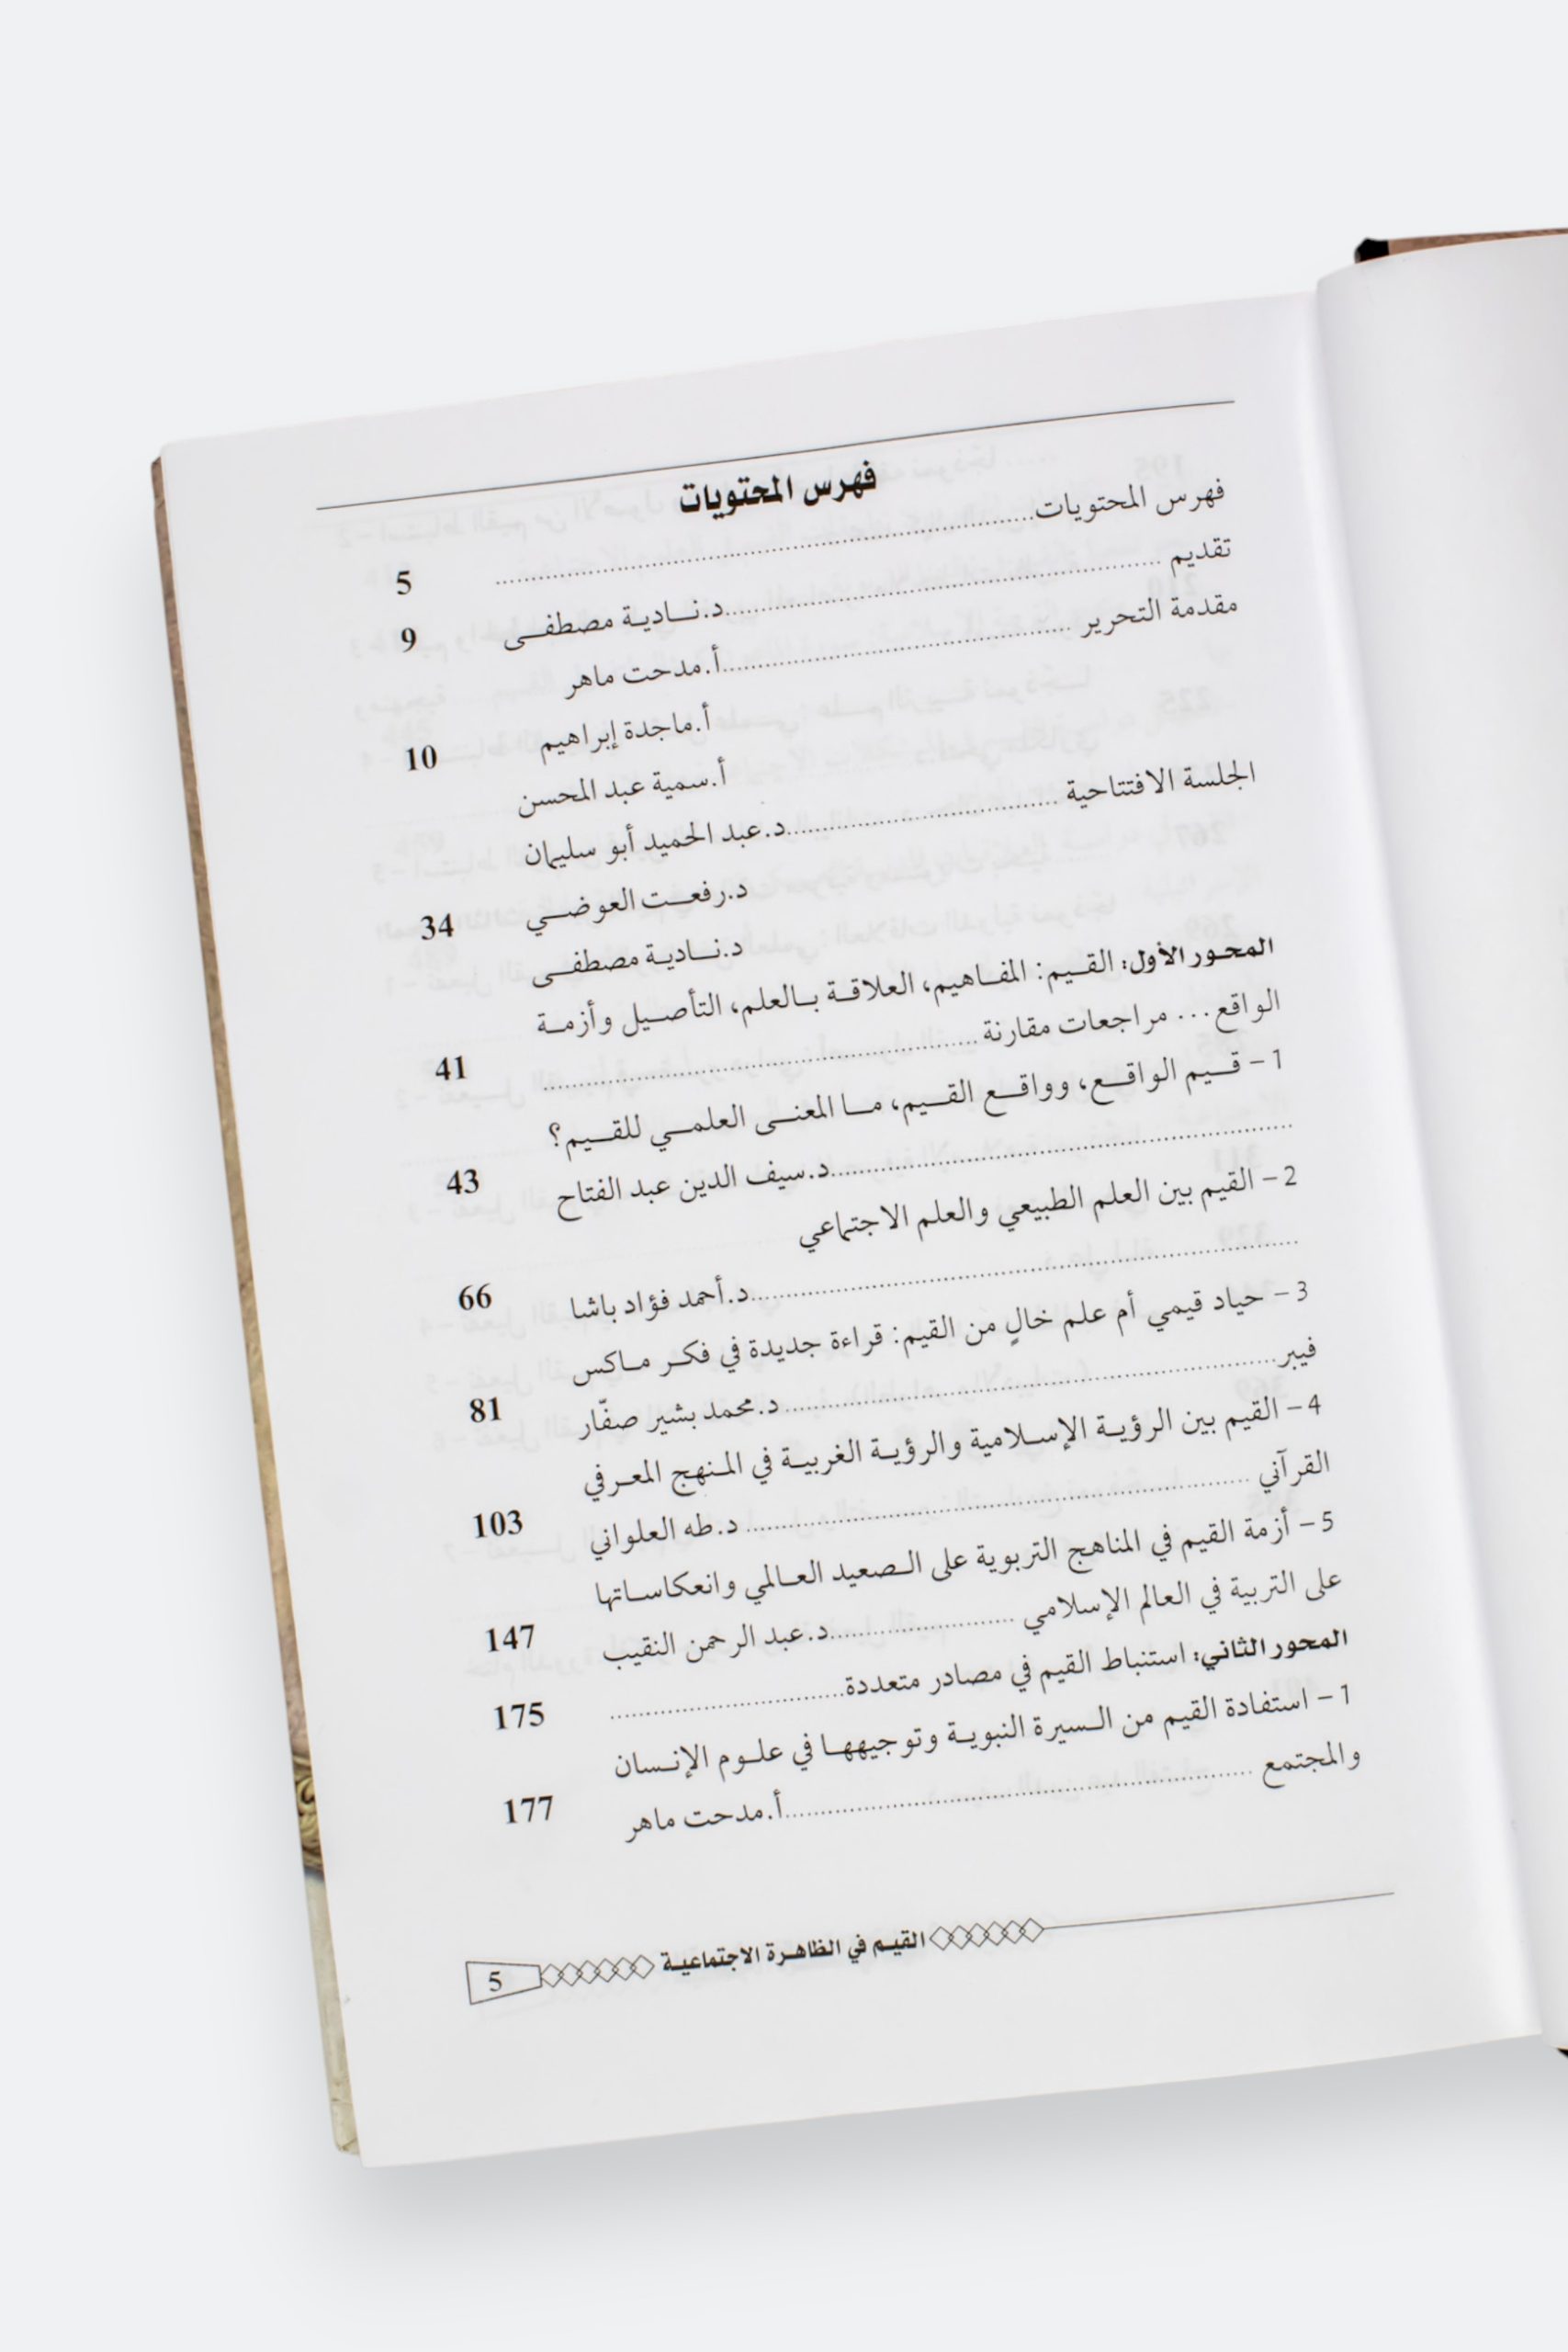 فهرس المحتويات
فهرس المحتويات........................................ 5
تقديم ........................................د.نـــاديـة مصطفـــى 9
مقدمة التحرير ........................................أ.مدحت ماهر
أ.ماجدة إبراهيم 10
أ.سمية عبد المحسن
الجلسة الافتتاحية ........................................د.عبد الحميد أبو سليمان
د.رفعـــت العوضـــي 34
د.نـــاديـة مصطفـــى
المحـور الأول: القـــيم: المفـاهيم، العلاقـة بـالعلم، التأصـيل وأزمـة
الواقع... مراجعات مقارنة ........................................ 41
1 - قـــيم الواقـــع، وواقـــع القـــيم، مـــا المعنـــى العلمـــي للقـــيم؟
........................................د.سيف الدين عبد الفتاح 43
2 - القيم بين العلم الطبيعي والعلم الاجتماعي
........................................د.أحمد فؤاد باشا 66
3 - حياد قيمي أم علم خالٍ من القيم: قراءة جديدة في فكـر مـاكس
فيبر........................................ د.محمد بشير صفّار 81
4 - القيم بين الرؤيـة الإسـلامية والرؤيـة الغربيـة في المـنهج المعـرفي
القرآني ........................................ د.طه العلواني 103
5 - أزمة القيم في المناهج التربوية على الـصعيد العـالمي وانعكاسـاتها
على التربية في العالم الإسلامي ........................................د.عبد الرحمن النقيب 147
المحور الثاني: استنباط القيم في مصادر متعددة........................................ 175
1 - استفادة القيم من الـسيرة النبويـة وتوجيههـا في علـوم الإنـسان
والمجتمع ........................................أ.مدحت ماهر 177
القيـم في الظاهـرة الاجتماعيـة 5